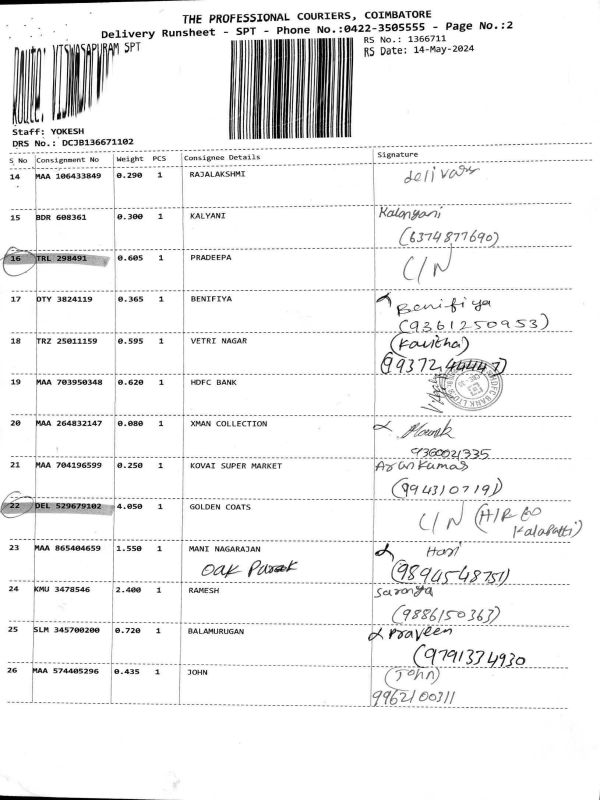 THE PROFESSIONAL COURIERS, COIMBATORE
Delivery Runsheet - SPT - Phone No.:0422-3505555 - Page No.:2
RS No.: 1366711
RS Date: 14-May-2024
Route: VISWASAPURAM SPT
Staff: YOKESH
DRS No.: DCJB136671102
S No Consignment No Weight PCS Consignee Details Signature
14 MAA 106433849 0.290 1 RAJALAKSHMI
15 BDR 608361 0.300 1 KALYANI
(6374877690)
16 TRL 298491 0.605 1 PRADEEPA C/N
17 DTY 3824119 0.365 1 BENIFIYA Benifiya
(9361250953)
18 TRZ 25011159 0.595 1 VETRI NAGAR (Kavitha)
19 MAA 703950348 0.620 1 HDFC BANK
HDFC BANK LTD
20 MAA 264832147 0.080 1 XMAN COLLECTION
9360021335
21 MAA 704196599 0.250 1 KOVAI SUPER MARKET Arun Kumar
(9943107191)
22 DEL 529679102 4.050 1 GOLDEN COATS C/N
Kalapatti)
23 MAA 865404659 1.550 1 MANI NAGARAJAN Hari
Oak (9894548751)
24 KMU 3478546 2.400 1 RAMESH Saranya
(9886150363)
25 SLM 345700200 0.720 1 BALAMURUGAN Praveen
(9791334930
26 MAA 574405296 0.435 1 JOHN (John)
9962100311